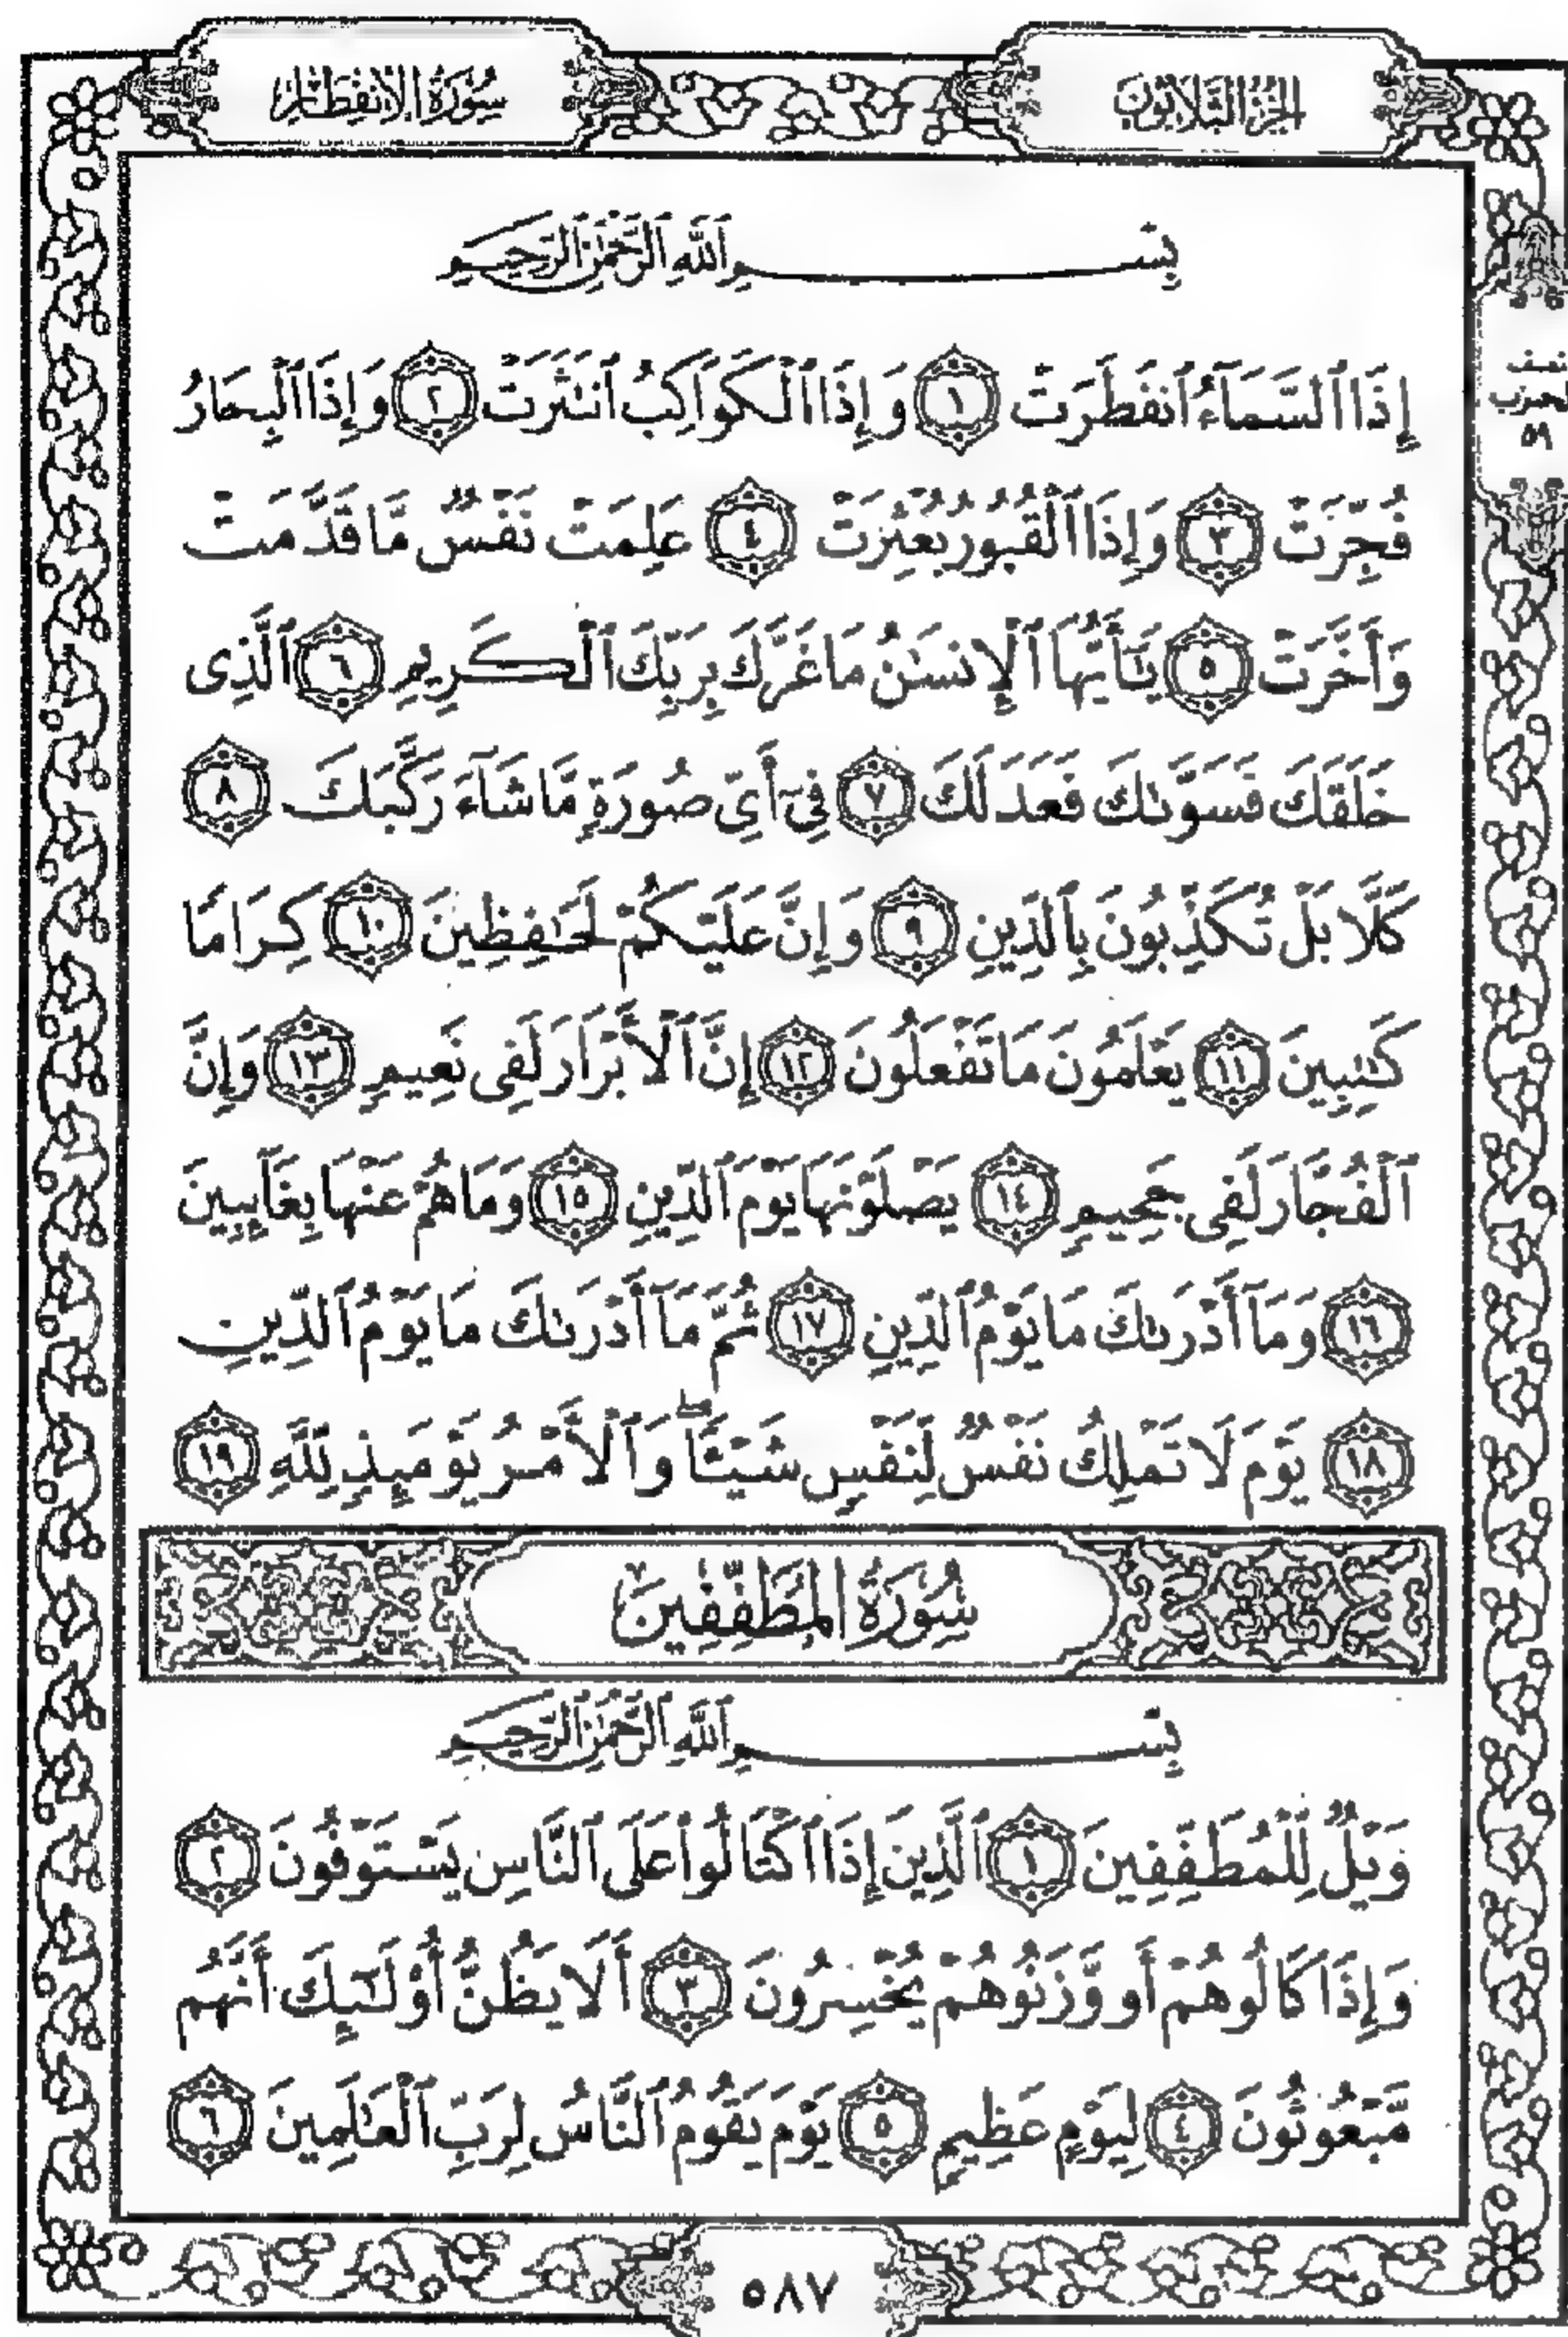 الجزء الثلاثون
سورة الانفطار
بِسْمِ ٱللَّهِ ٱلرَّحْمَٰنِ ٱلرَّحِيمِ
نصف
الحزب
٥٩
إِذَا ٱلسَّمَآءُ ٱنفَطَرَتْ ١ وَإِذَا ٱلْكَوَاكِبُ ٱنتَثَرَتْ ٢ وَإِذَا ٱلْبِحَارُ
فُجِّرَتْ ٣ وَإِذَا ٱلْقُبُورُ بُعْثِرَتْ ٤ عَلِمَتْ نَفْسٌ مَّا قَدَّمَتْ
وَأَخَّرَتْ ٥ يَٰٓأَيُّهَا ٱلْإِنسَٰنُ مَا غَرَّكَ بِرَبِّكَ ٱلْكَرِيمِ ٦ ٱلَّذِى
خَلَقَكَ فَسَوَّىٰكَ فَعَدَلَكَ ٧ فِىٓ أَىِّ صُورَةٍ مَّا شَآءَ رَكَّبَكَ ٨
كَلَّا بَلْ تُكَذِّبُونَ بِٱلدِّينِ ٩ وَإِنَّ عَلَيْكُمْ لَحَٰفِظِينَ ١٠ كِرَامًا
كَٰتِبِينَ ١١ يَعْلَمُونَ مَا تَفْعَلُونَ ١٢ إِنَّ ٱلْأَبْرَارَ لَفِى نَعِيمٍ ١٣ وَإِنَّ
ٱلْفُجَّارَ لَفِى جَحِيمٍ ١٤ يَصْلَوْنَهَا يَوْمَ ٱلدِّينِ ١٥ وَمَا هُمْ عَنْهَا بِغَآئِبِينَ
١٦ وَمَآ أَدْرَىٰكَ مَا يَوْمُ ٱلدِّينِ ١٧ ثُمَّ مَآ أَدْرَىٰكَ مَا يَوْمُ ٱلدِّينِ
١٨ يَوْمَ لَا تَمْلِكُ نَفْسٌ لِّنَفْسٍ شَيْـًٔا ۖ وَٱلْأَمْرُ يَوْمَئِذٍ لِّلَّهِ ١٩
سُورَةُ المُطَفِّفِينَ
بِسْمِ ٱللَّهِ ٱلرَّحْمَٰنِ ٱلرَّحِيمِ
وَيْلٌ لِّلْمُطَفِّفِينَ ١ ٱلَّذِينَ إِذَا ٱكْتَالُوا۟ عَلَى ٱلنَّاسِ يَسْتَوْفُونَ ٢
وَإِذَا كَالُوهُمْ أَو وَّزَنُوهُمْ يُخْسِرُونَ ٣ أَلَا يَظُنُّ أُو۟لَٰٓئِكَ أَنَّهُم
مَّبْعُوثُونَ ٤ لِيَوْمٍ عَظِيمٍ ٥ يَوْمَ يَقُومُ ٱلنَّاسُ لِرَبِّ ٱلْعَٰلَمِينَ ٦
٥٨٧